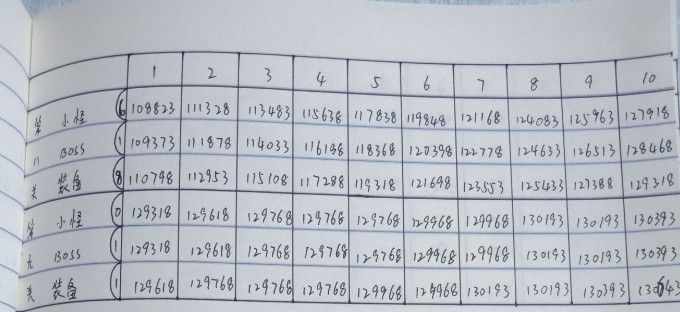 1 2 3 4 5 6 7 8 9 10
第 小怪 6 108823 111328 113483 115638 117838 119848 121168 124083 125963 127918
八 BOSS 1 109373 111878 114033 116188 118368 120398 122778 124633 126513 128468
关 装备 8 110798 112953 115108 117288 119318 121698 123553 125433 127388 129318
第 小怪 0 129318 129618 129768 129768 129768 129968 129968 130193 130193 130393
九 BOSS 1 129318 129618 129768 129768 129768 129968 129968 130193 130193 130393
关 装备 1 129618 129768 129768 129768 129968 129968 130193 130193 130393